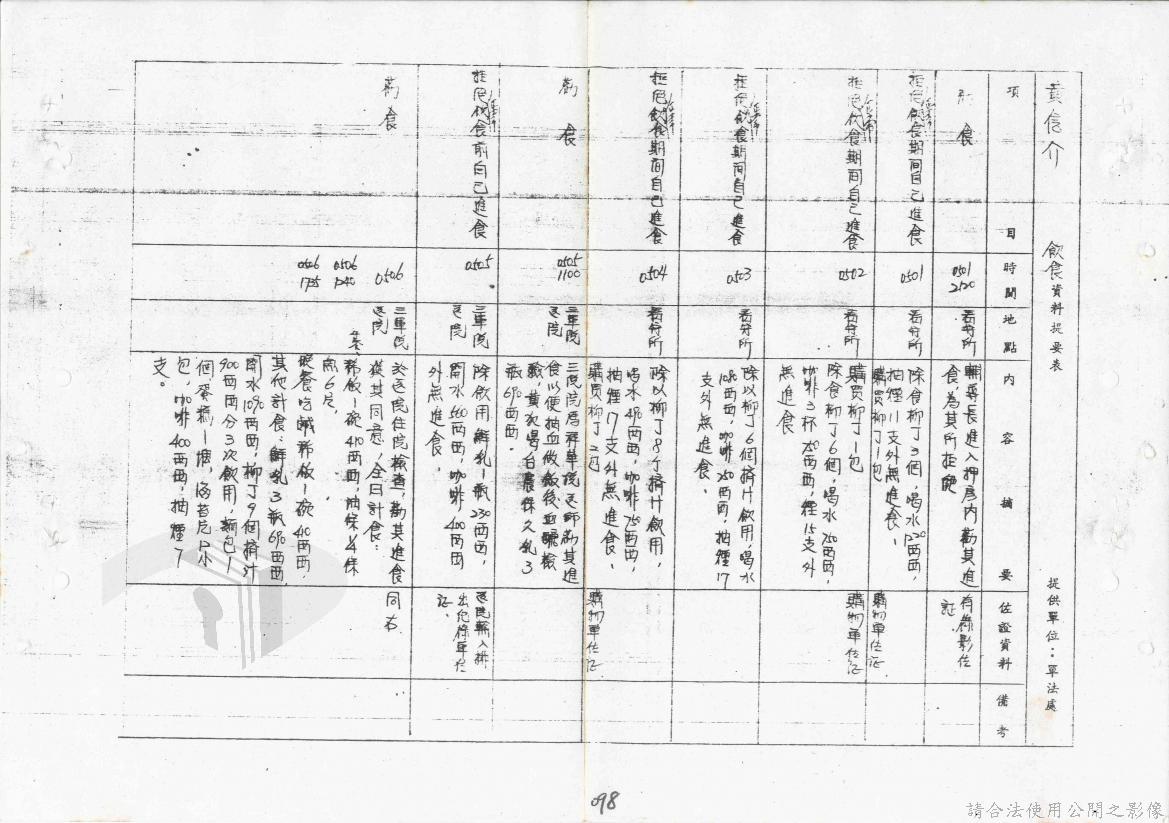 黃信介 飲食資料提要表 提供單位：軍法處
項目
時間
地點
內容摘要
佐證資料
備考
勸食
0501
2120
看守所
輔導長進入押房內勸其進
食，為其所拒絕
有錄影佐
証。
拒絕飲食期間自己進食
0501
看守所
除食柳丁3個，喝水120西西，
抽煙11支外無進食。
購買柳丁1包
購物單佐証
拒絕飲食期間自己進食
0502
看守所
購買柳丁1包
除食柳丁6個，喝水250西西，
咖啡3杯750西西，煙15支外
無進食
購物單佐証
拒絕飲食期間自己進食
0503
看守所
除以柳丁6個擠汁飲用，喝水
西西，咖啡250西西，抽煙17
支外無進食。
拒絕飲食期間自己進食
0504
看守所
除以柳丁8个擠汁飲用，
喝水西西，咖啡750西西，
抽煙17支外無進食。
購買柳丁2包
購物單佐証
勸食
0505
1100
三軍院
醫院
三院院馬祥草院醫師勸其進
食以便抽血做飯後血糖檢
驗，其次喝白農保久乳3
瓶690西西
拒絕飲食前自己進食
0505
三軍院
醫院
除飲用鮮乳1瓶230西西，
開水500西西，咖啡400西西
外無進食。
醫院輸入排
出紀錄單佐
証。
勸食
0506
0506
1240
0506
1735
三軍院
醫院
於醫院住院檢查，勸其進食
獲其同意，全日計食：
稀飯1碗410西西，油條4條
晚餐吃鹹稀飯1碗410西西，
其他計食：鮮乳3瓶690西西，
開水西西，柳丁9個擠汁
900西西分3次飲用，麵包1
個，蛋糕1塊，
包，咖啡400西西，抽煙7
支。
同右
098
請合法使用公開之影像